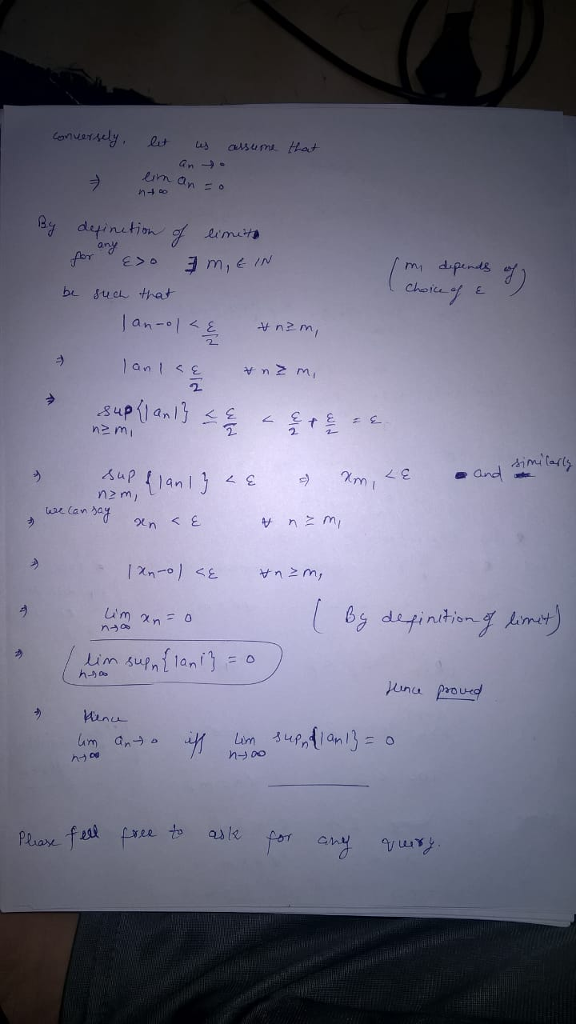 conversely, let us assume that
an → 0
⇒ lim n→∞ an = 0
By definition of limit
for any ε>0 ∃ m₁ ∈ IN (m₁ depends of choice of ε)
be such that
|an-0| < ε/2 ∀ n≥m₁
⇒ |an| < ε/2 ∀ n ≥ m₁
⇒ sup n≥m₁ {|an|} ≤ ε/2 < ε/2 + ε/2 = ε
⇒ sup n≥m₁ {|an|} < ε ⇒ xm₁ < ε and similarly
⇒ we can say xn < ε ∀ n ≥ m₁
⇒ |xn-0| < ε ∀ n ≥ m₁
⇒ lim n→∞ xn = 0 (By definition of limit)
⇒ lim n→∞ supn{|an|} = 0
Hence proved
⇒ Hence
lim n→∞ an → 0 iff lim n→∞ supn{|an|} = 0
Please feel free to ask for any query.